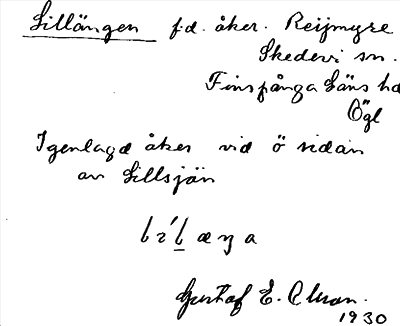 Lillängen f.d. åker. Reijmyre
Skedevi sn.
Finspånga Läns hd
Ögl
Igenlagd åker vid ö sidan
av Lillsjön
Gustaf E.
1930